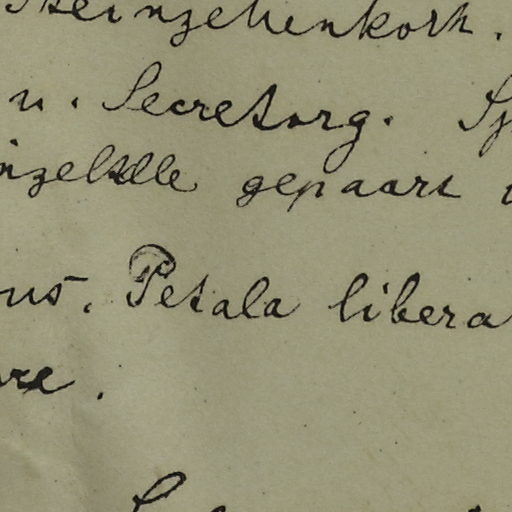 Steinzellenkork.
u. Secretorg. Sp
inzelzelle gepaart
us. Petala libera
re.